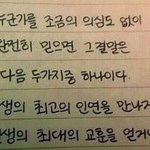 누군가를 조금의 의심도 없이
완전히 믿으면 그 결말은
다음 두가지중 하나이다.
생의 최고의 인연을 만나거
생의 최대의 교훈을 얻거나